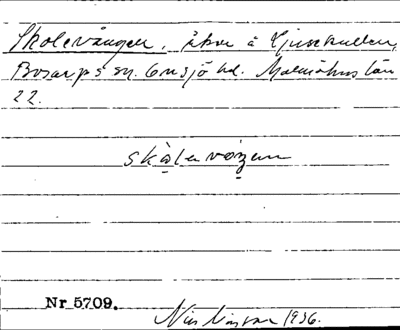 Skolevången, åker å Ljuskullen,
Bosarps sn. Onsjö hd. Malmöhus län
22.
Nr 5709.
Nils 1936.